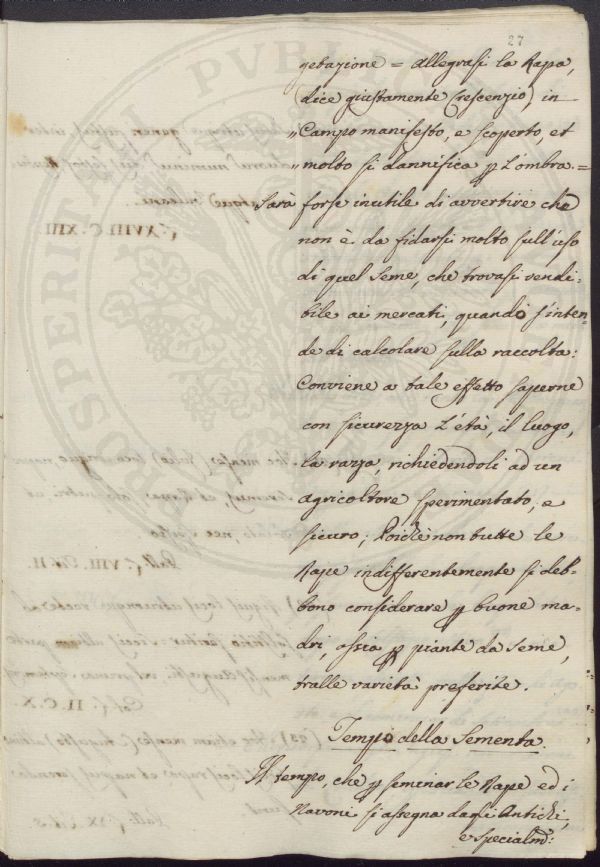 27
getazione = Allegrasi la Rapa,
(dice giustamente Crescenzio) in
„ Campo manifesto, e scoperto, et
„ molto si dannifica p l'ombra. =
Sarà forse inutile di avvertire che
non è da fidarsi molto sull'uso
di quel seme, che trovasi vendi:
bile ai mercati, quando s'inten:
de di calcolare sulla raccolta:
Conviene a tale effetto saperne
con sicurezza l'età, il luogo,
la razza, richiedendoli ad un
agricoltore sperimentato, e
sicuro; Poichè non tutte le
Rape indifferentemente si deb:
bono considerare p buone ma:
dri, ossia p piante da seme,
tralle varietà preferite.
Tempo della Sementa.
Il tempo, che p seminar le Rape ed i
Navoni si assegna dagli Antichi,
e specialm:
PROSPERITATI PUBLICAE